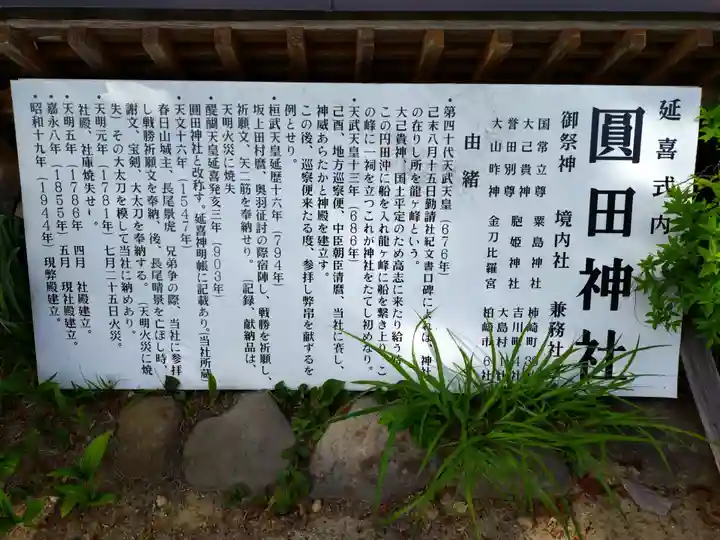 延喜式内
圓田神社
御祭神　境内社　兼務社
国常立尊　粟島神社　柿崎町
大己貴神　胞姫神社　吉川町
誉田別尊　　　　　　大島村
大山昨神　金刀比羅宮　柏崎市　6社
由緒
・第四十代天武天皇（676年）
己未八月十五日勤請社紀文書口碑によれば、神社
の在りし所を龍ヶ峰という。
大己貴神、国土平定のため高志に来たり給う
この円田沖に船を入れ龍ヶ峰に船を繋き上
の峰に一祠を立つこれが神社をたてし初めなり。
・天武天皇十三年（686年）
己酉、地方巡察便、中臣朝臣清麿、当社に斎し、
神威あらたかと神殿を建立す。
この後、巡察便来たる度、参拝し弊帛を献ずるを
例とせり。
・桓武天皇延暦十六年（794年）
坂上田村麿、奥羽征討の際宿陣し、戦勝を祈願し、
祈願文、矢二筋を奉納せり。（記録、献納品は、
天明火災に焼失
・醍醐天皇延喜発亥三年（903年）
圓田神社と改称す。延喜神明帳に記載あり（当社所蔵
・天文十六年（1547年）
春日山城主、長尾景虎、兄弟争の際、当社に参拝
し戦勝祈願文を奉納、後、長尾晴景を亡ぼし時、
謝文、宝剣、大太刀を奉納する。（天明火災に焼
失）その大太刀を模して当社に納めあり。
・天明元年（1781年）七月二十五日火災。
社殿、社庫焼失せ
・天明五年（1786年　四月　社殿建立。
・嘉永八年（1855年）五月　現社殿建立。
・昭和十九年（1944年）現弊殿建立。